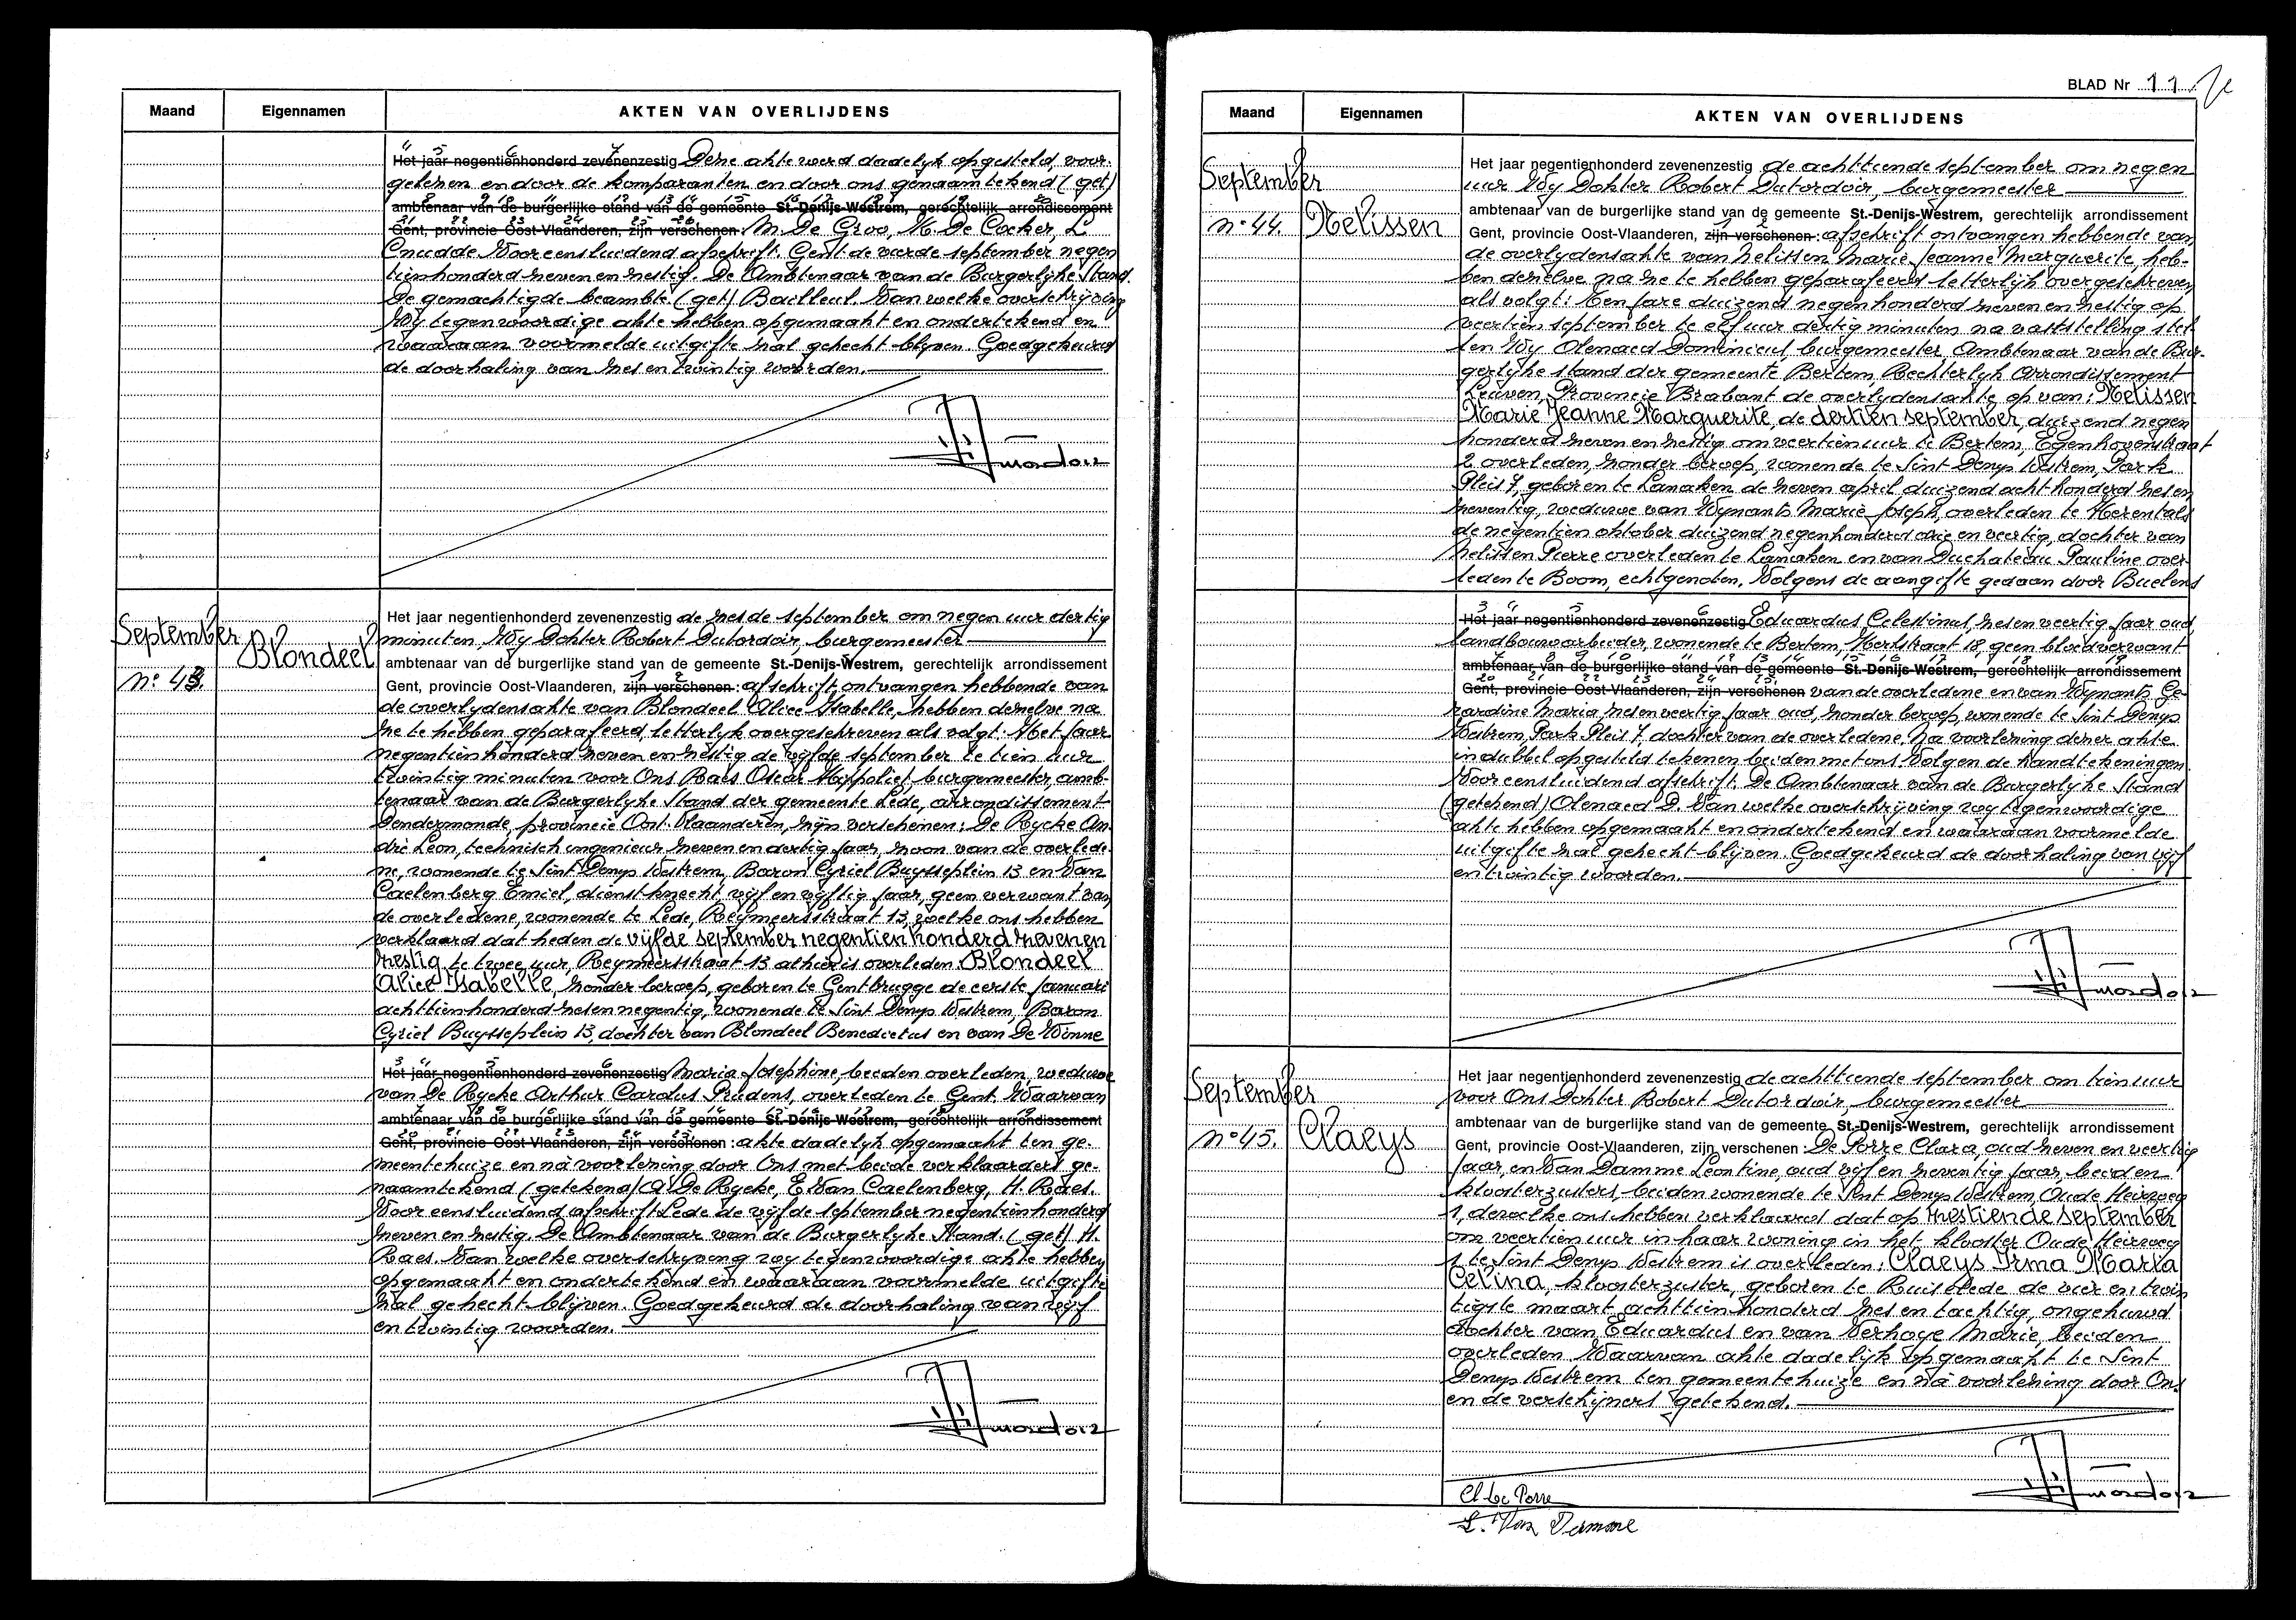 Maand Eigennamen AKTEN VAN OVERLIJDENS
Het jaar negentienhonderd zevenenzestig Deze akte werd dadelyk opgesteld, voor-
gelezen en door de komparanten en door ons genaamtekend (get)
ambtenaar van de burgerlijke stand van de gemeente St.-Denijs-Westrem, gerechtelijk arrondissement
Gent, provincie Oost-Vlaanderen, zijn verschenen: M. De Groo, K. De Cocker, L
Cnudde. Voor eensluidend afschrift. Gent de vierde september negen
tienhonderd zeven en zestig. De Ambtenaar van de Burgerlyke stand.
De gemachtigde beambte. (get) Bailleul. Van welke overschrijving
Wy tegenwoordige akte hebben opgemaakt en ondertekend en
waaraan voormelde uitgifte zal gehecht blyven. Goedgekeurd
de doorhaling van zes en twintig woorden.
September
Blondeel
n° 43.
Het jaar negentienhonderd zevenenzestig de zesde september om negen uur dertig
minuten, Wy Dokter Robert Dutordoir, burgemeester
ambtenaar van de burgerlijke stand van de gemeente St.-Denijs-Westrem, gerechtelijk arrondissement
Gent, provincie Oost-Vlaanderen, zijn verschenen: afschrift ontvangen hebbende van
de overlydensakte van Blondeel Alice Isabelle, hebben dezelve na
ze te hebben geparafeerd, letterlyk overgeschreven als volgt: Het jaar
negentienhonderd zeven en zestig de vyfde september te tien uur
twintig minuten voor Ons Raes Oscar Hippoliet, burgemeester, amb-
tenaar van de Burgerlyke Stand der gemeente Lede, arrondissement
Dendermonde, provincie Oost-Vlaanderen, zyn verschenen: De Rycke An-
dré Leon, technisch ingenieur zeven en dertig jaar, zoon van de overlede-
ne, wonende te Sint Denys Westrem, Baron Cyriel Buysseplein 13 en Van
Caelenberg Emiel, dienstknecht, vyf en vyftig jaar, geen verwant van
de overledene, wonende te Lede, Reymeersstraat 13, welke ons hebben
verklaard dat heden de vijfde september negentien honderd zevenen
zestig te twee uur, Reymeersstraat 13 alhier is overleden: Blondeel
Alice Isabelle, zonder beroep, geboren te Gentbrugge de eerste Januari
achttienhonderd zesen negentig, wonende te Sint Denys Westrem, Baron
Cyriel Buysseplein 13, dochter van Blondeel Benedictus en van De Winne
Het jaar negentienhonderd zevenenzestig Maria Josephine, beiden overleden, weduwe
van De Rycke Arthur Carolus Prudens, overleden te Gent. Waarvan
ambtenaar van de burgerlijke stand van de gemeente St.-Denijs-Westrem, gerechtelijk arrondissement
Gent, provincie Oost-Vlaanderen, zijn verschenen: akte dadelyk opgemaakt ten ge-
meentehuize en na voorlezing door Ons met beide verklaarders ge-
naamtekend (getekend) A. De Rycke, E. Van Caelenberg, H. Raes.
Voor eensluidend afschrift Lede de vyfde september negentienhonderd
zeven en zestig. De Ambtenaar van de Burgerlyke Stand. (get) H.
Raes. Van welke overschryving wy tegenwoordige akte hebben
opgemaakt en ondertekend en waaraan voormelde uitgifte
zal gehecht blijven. Goedgekeurd de doorhaling van vyf
en twintig woorden.
BLAD Nr 11
Maand Eigennamen AKTEN VAN OVERLIJDENS
September
n° 44. Nelissen
Het jaar negentienhonderd zevenenzestig de achttiende september om negen
uur Wy Dokter Robert Dutordoir, burgemeester
ambtenaar van de burgerlijke stand van de gemeente St.-Denijs-Westrem, gerechtelijk arrondissement
Gent, provincie Oost-Vlaanderen, zijn verschenen: afschrift ontvangen hebbende van
de overlydensakte van Nelissen Marie Jeanne Marguerite, heb-
ben dezelve na ze te hebben geparafeerd letterlyk overgeschreven
als volgt: Ten jare duizend negenhonderd zeven en zestig op
veertien september te elf uur dertig minuten na vaststelling stel-
len Wy Olenaed Dominicus, burgemeester, Ambtenaar van de Bur-
gerlyke stand der gemeente Bertem, Rechterlyk Arrondissement
Leuven, Provincie Brabant de overlydensakte op van: Nelissen
Marie Jeanne Marguerite, de dertien september, duizend negen
honderd zeven en zestig om veertien uur te Bertem, Egenhovenstraat
2 overleden, zonder beroep, wonende te Sint Denys Westrem, Park
Pleis 7, geboren te Lanaken de zeven april duizend acht honderd zes en
zeventig, weduwe van Wynants Marie Joseph, overleden te Herentals
de negentien oktober duizend negenhonderd drie en veertig, dochter van
Nelissen Pierre overleden te Lanaken en van Duchateau Pauline over-
leden te Boom, echtgenoten. Volgens de aangifte gedaan door Buelens
Het jaar negentienhonderd zevenenzestig Eduardus Celestinus, zesenveertig jaar oud,
landbouwarbeider, wonende te Bertem, Hertstraat 18, geen bloedverwant
ambtenaar van de burgerlijke stand van de gemeente St.-Denijs-Westrem, gerechtelijk arrondissement
Gent, provincie Oost-Vlaanderen, zijn verschenen van de overledene en van Wynants Ge-
rardine Maria, zesenveertig jaar oud, zonder beroep, wonende te Sint Denys
Westrem, Park Pleis 7, dochter van de overledene. Na voorlezing dezer akte
in dubbel opgesteld tekenen beiden met ons. Volgen de handtekeningen.
Voor eensluidend afschrift. De Ambtenaar van de Burgerlyke Stand
(getekend) Olenaed D. Van welke overschrijving wy tegenwoordige
akte hebben opgemaakt en ondertekend en waaraan voormelde
uitgifte zal gehecht blijven. Goedgekeurd de doorhaling van vyf
en twintig woorden.
September
n° 45. Claeys
Het jaar negentienhonderd zevenenzestig de achttiende september om tien uur
voor Ons Dokter Robert Dutordoir, burgemeester
ambtenaar van de burgerlijke stand van de gemeente St.-Denijs-Westrem, gerechtelijk arrondissement
Gent, provincie Oost-Vlaanderen, zijn verschenen: De Porre Clara, oud zeven en veertig
jaar, en Van Damme Leontine, oud vijf en zeventig jaar, beiden
kloosterzusters, beiden wonende te Sint Denys Westrem, Oude Heirweg
1, dewelke ons hebben verklaard dat op zestiende september
om veertien uur in haar woning in het klooster Oude Heirweg
1 te Sint Denys Westrem is overleden: Claeys Irma Maria
Celina, kloosterzuster, geboren te Ruiselede de vier en twin
tigste maart achttien honderd zes en tachtig, ongehuwd
dochter van Eduardus en van Verhoye Marie, beiden
overleden. Waarvan akte dadelijk opgemaakt te Sint
Denys Westrem ten gemeentehuize en na voorlezing door Ons
en de verschijners getekend.
Cl De Porre
L. Van Damme